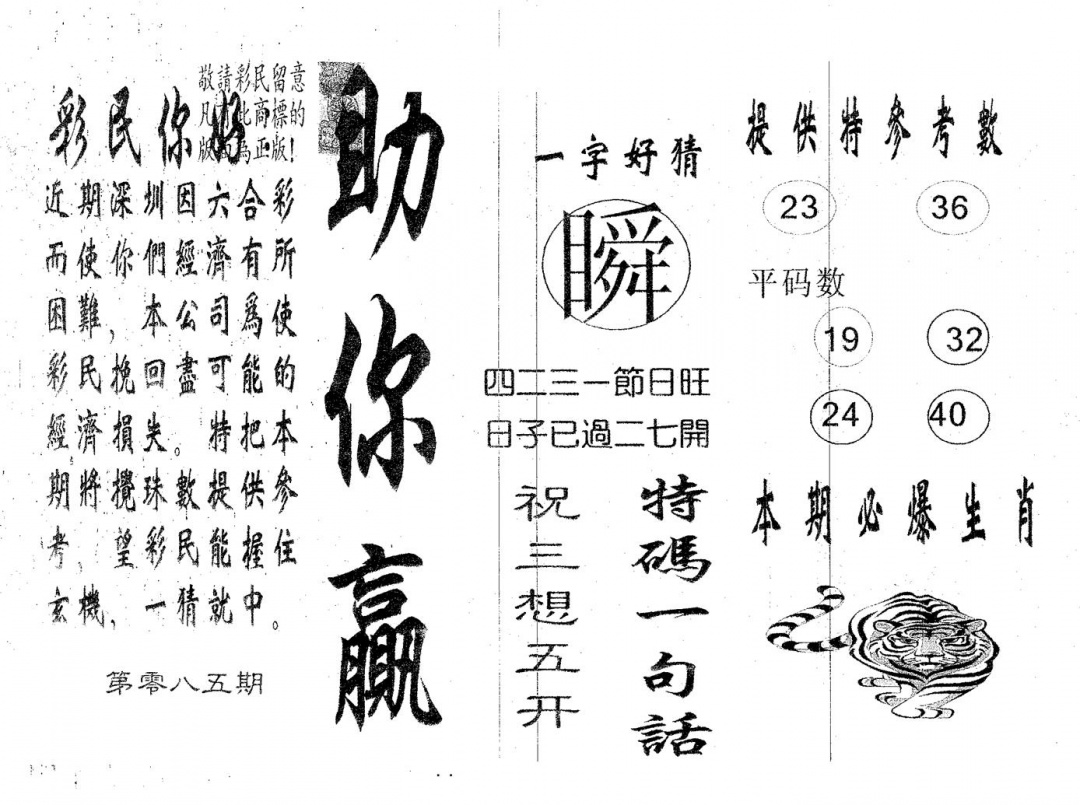 敬請彩民留意
凡 此商標的
版 為正版！
彩民你好
近期深圳因六合彩
而使你們經濟有所
困難，本公司爲使
彩民挽回盡可能的
經濟損失。特把本
期將攪珠數提供參
考，望彩民能握住
玄機，一猜就中。
第零八五期
助你贏
一字好猜
瞬
四二三一節日旺
日子已過二七開
特碼一句話
祝三想五开
提供特參考數
23 36
平码数
19 32
24 40
本期必爆生肖